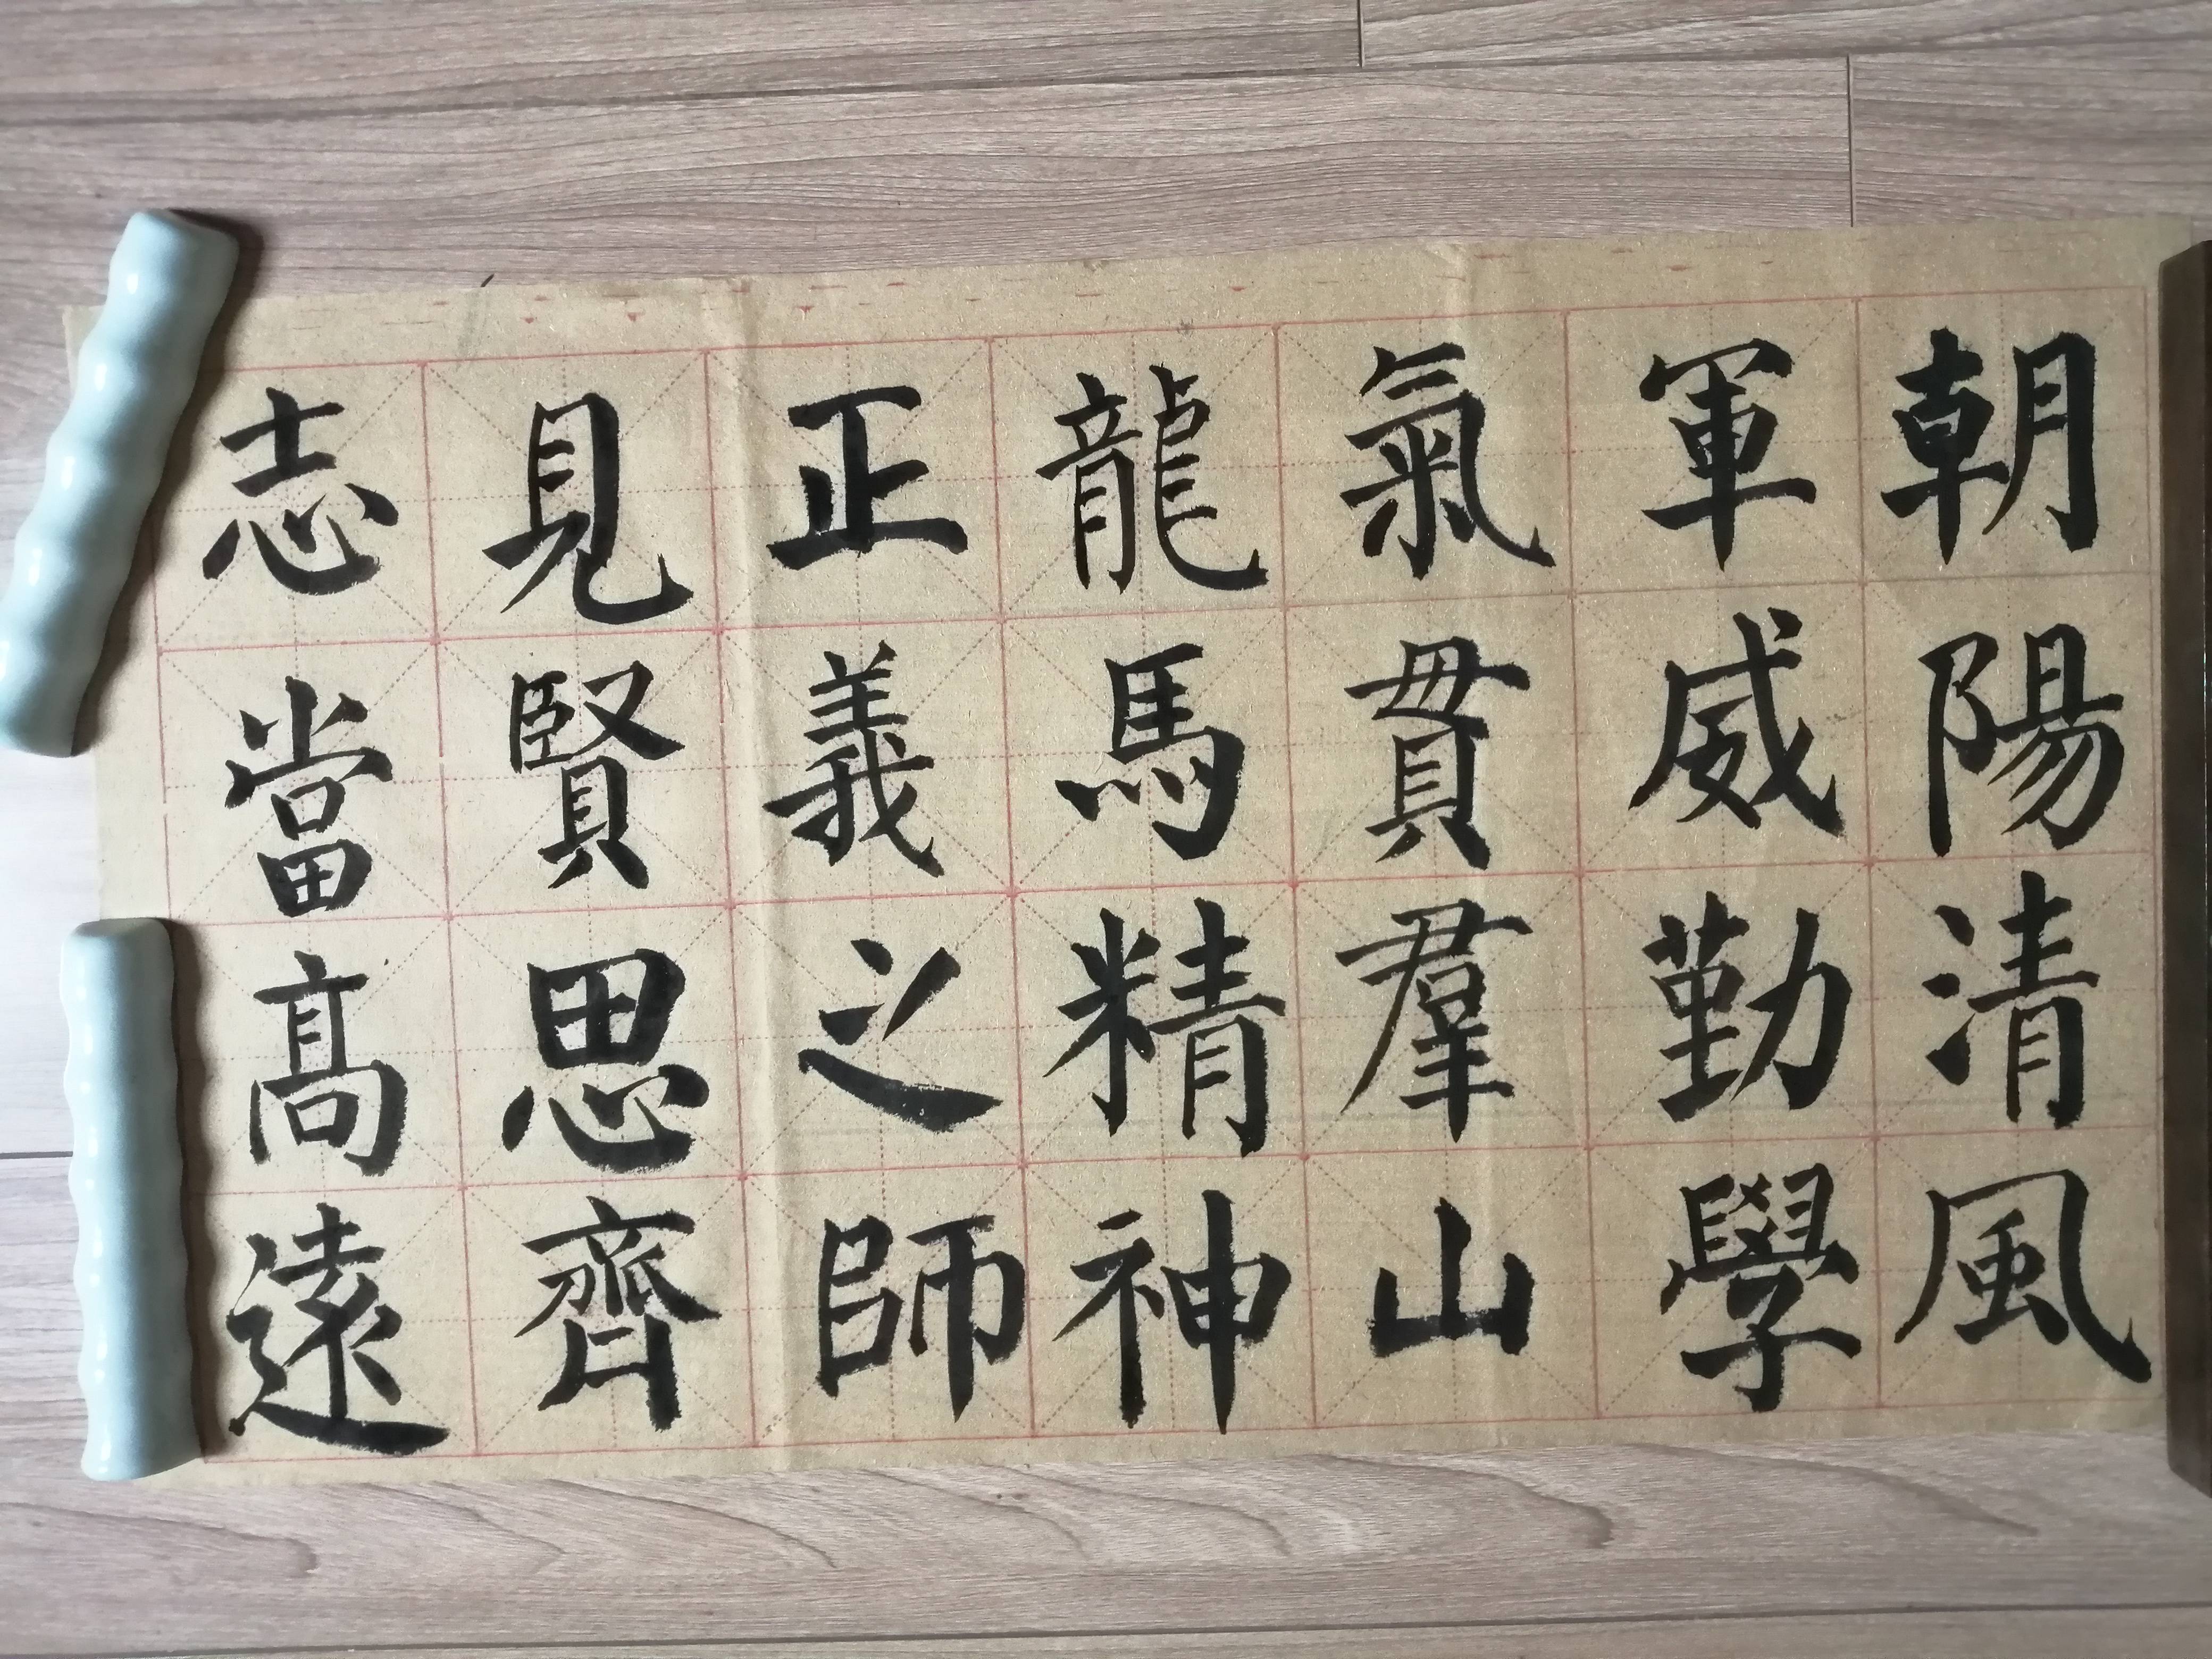 朝陽清風
軍威勤學
氣貫羣山
龍馬精神
正義之師
見賢思齊
志當高遠